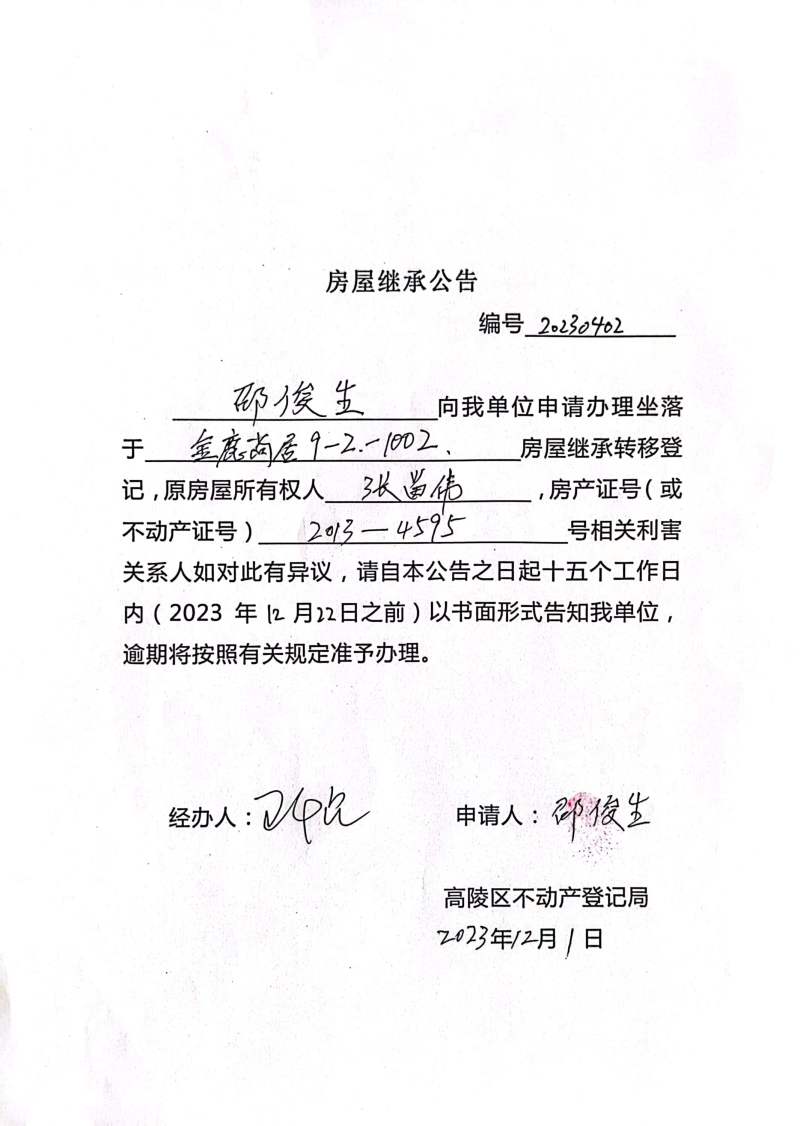 房屋继承公告
编号 20230402
邵俊生 向我单位申请办理坐落
于 金鹿尚居9-2.-1002、 房屋继承转移登
记，原房屋所有权人 张苗伟 ，房产证号（或
不动产证号） 2013—4595 号相关利害
关系人如对此有异议，请自本公告之日起十五个工作日
内（2023 年12月22日之前）以书面形式告知我单位，
逾期将按照有关规定准予办理。
经办人： 申请人：邵俊生
高陵区不动产登记局
2023年12月1日